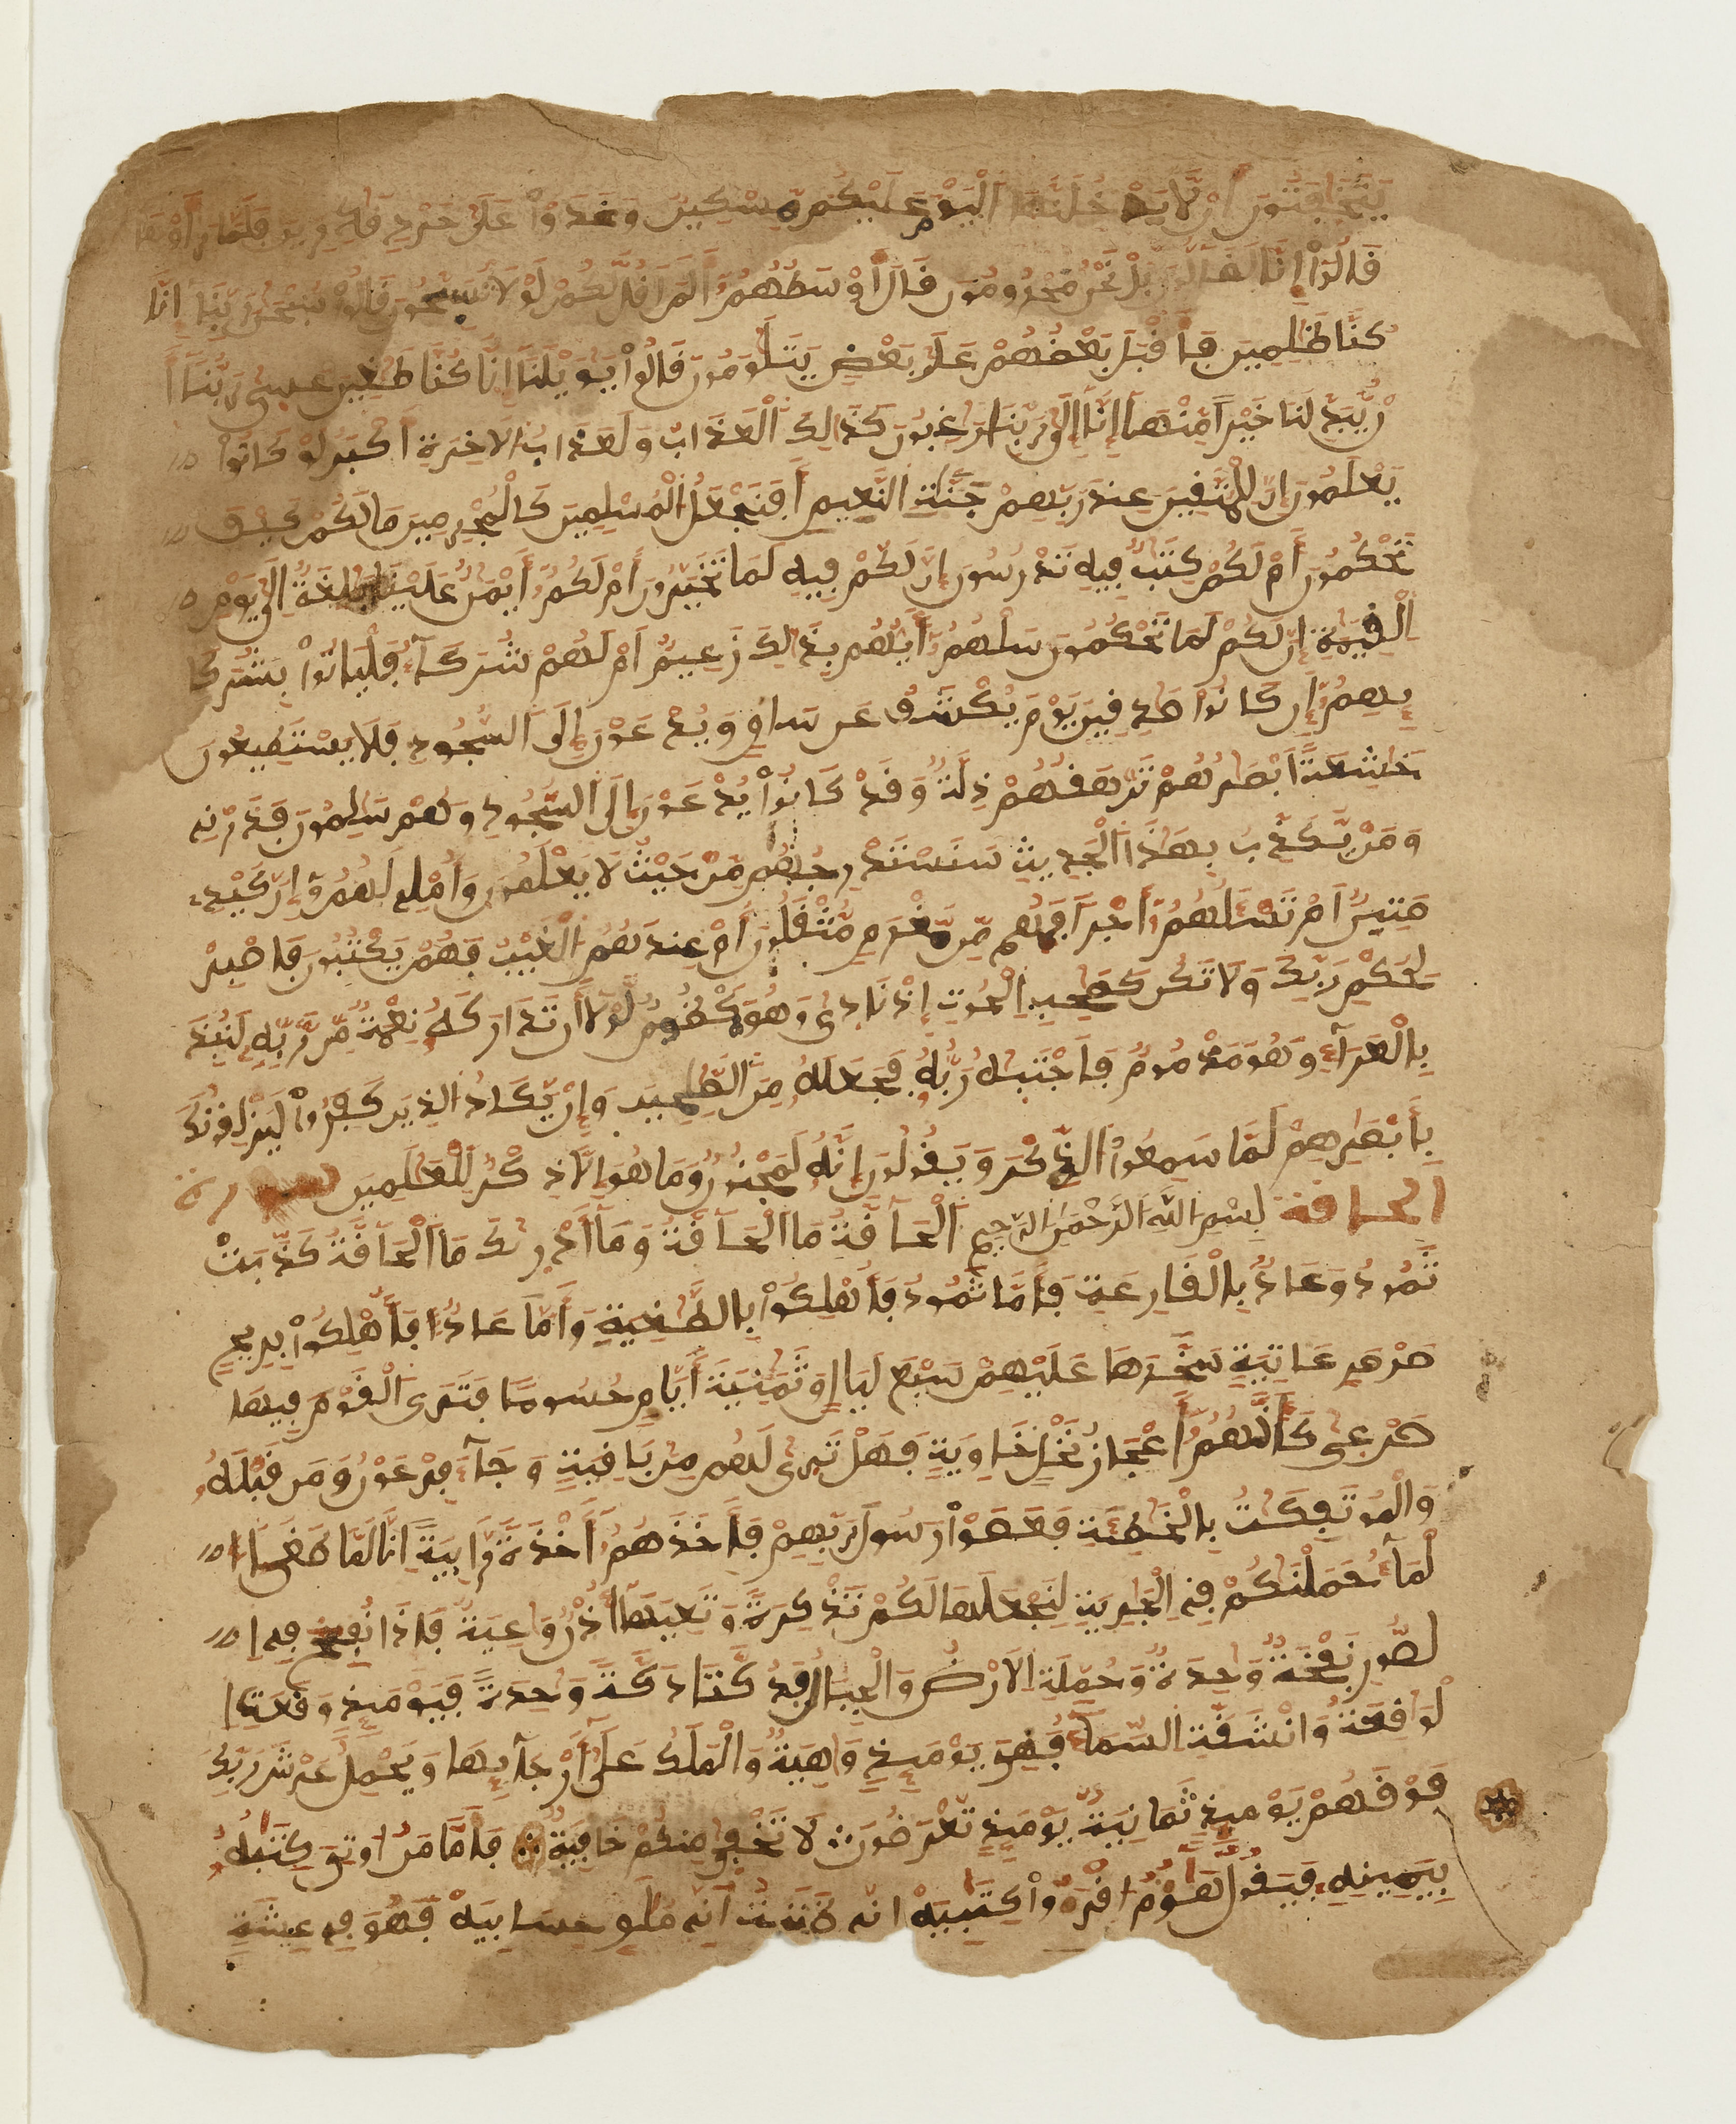 يَتَخَٰفَتُونَ أَن لَّا يَدْخُلَنَّهَا اَلْيَوْمَ عَلَيْكُم مِّسْكِينٌ وَغَدَوْاْ عَلَىٰ حَرْدٍ قَٰدِرِينَ فَلَمَّا رَأَوْهَا
قَالُوٓاْ إِنَّا لَضَآلُّونَ بَلْ نَحْنُ مَحْرُومُونَ قَالَ أَوْسَطُهُمُۥٓ أَلَمَ اَقُل لَّكُمْ لَوْلَا تُسَبِّحُونَ قَالُواْ سُبْحَٰنَ رَبِّنَآ إِنَّا
كُنَّا ظَٰلِمِينَ فَأَقْبَلَ بَعْضُهُمْ عَلَىٰ بَعْضٍ يَتَلَٰوَمُونَ قَالُواْ يَٰوَيْلَنَآ إِنَّا كُنَّا طَٰغِينَ عَسَىٰ رَبُّنَآ أَ
نْ يُّبَدِّلَنَا خَيْراً مِّنْهَآ إِنَّآ إِلَىٰ رَبِّنَا رَٰغِبُونَ كَذَٰلِكَ اَلْعَذَابُ وَلَعَذَابُ اُلَاخِرَةِ أَكْبَرُ لَوْ كَانُواْ
يَعْلَمُونَ إِنَّ لِلْمُتَّقِينَ عِندَ رَبِّهِمْ جَنَّٰتِ اِلنَّعِيمِ أَفَنَجْعَلُ اُلْمُسْلِمِينَ كَالْمُجْرِمِينَ مَا لَكُمْ كَيْفَ
تَحْكُمُونَ أَمْ لَكُمْ كِتَٰبٌ فِيهِ تَدْرُسُونَ إِنَّ لَكُمْ فِيهِ لَمَا تَخَيَّرُونَ أَمْ لَكُمُۥٓ أَيْمَٰنٌ عَلَيْنَا بَٰلِغَةٌ اِلَىٰ يَوْمِ
اِلْقِيَٰمَةِ إِنَّ لَكُمْ لَمَا تَحْكُمُونَ سَلْهُمُۥٓ أَيُّهُم بِذَٰلِكَ زَعِيمٌ اَمْ لَهُمْ شُرَكَآءُ فَلْيَاتُواْ بِشُرَكَا
ئِهِمُۥٓ إِن كَانُواْ صَٰدِقِينَ يَوْمَ يُكْشَفُ عَن سَاقٍ وَيُدْعَوْنَ إِلَى اَلسُّجُودِ فَلَا يَسْتَطِيعُونَ
خَٰشِعَةً اَبْصَٰرُهُمْ تَرْهَقُهُمْ ذِلَّةٌ وَقَدْ كَانُواْ يُدْعَوْنَ إِلَى اَلسُّجُودِ وَهُمْ سَٰلِمُونَ فَذَرْنِي
وَمَنْ يُّكَذِّبُ بِهَٰذَا اَلْحَدِيثِ سَنَسْتَدْرِجُهُم مِّنْ حَيْثُ لَا يَعْلَمُونَ وَأُمْلِي لَهُمُۥٓ إِنَّ كَيْدِي
مَتِينٌ اَمْ تَسْـَٔلُهُمُۥٓ أَجْراً فَهُم مِّن مَّغْرَمٍ مُّثْقَلُونَ أَمْ عِندَهُمُ اُلْغَيْبُ فَهُمْ يَكْتُبُونَ فَاصْبِرْ
لِحُكْمِ رَبِّكَ وَلَا تَكُن كَصَٰحِبِ اِلْحُوتِ إِذْ نَادَىٰ وَهُوَ مَكْظُومٌ لَّوْلَآ أَن تَدَٰرَكَهُۥ نِعْمَةٌ مِّن رَّبِّهِۦ لَنُبِذَ
بِالْعَرَآءِ وَهُوَ مَذْمُومٌ فَاجْتَبَٰهُ رَبُّهُۥ فَجَعَلَهُۥ مِنَ اَلصَّٰلِحِينَ وَإِنْ يَّكَادُ اُلذِينَ كَفَرُواْ لَيَزْلِقُونَكَ
بِأَبْصَٰرِهِمْ لَمَّا سَمِعُواْ اُلذِّكْرَ وَيَقُولُونَ إِنَّهُۥ لَمَجْنُونٌ وَمَا هُوَ إِلَّا ذِكْرٌ لِّلْعَٰلَمِينَ
الحاقة بِسْمِ اِللَّهِ اِلرَّحْمَٰنِ اِلرَّحِيمِ اَلْحَآقَّةُ مَا اَلْحَآقَّةُ وَمَآ أَدْرَىٰكَ مَا اَلْحَآقَّةُ كَذَّبَتْ
ثَمُودُ وَعَادٌ بِالْقَارِعَةِ فَأَمَّا ثَمُودُ فَأُهْلِكُواْ بِالطَّاغِيَةِ وَأَمَّا عَادٌ فَأُهْلِكُواْ بِرِيحٍ
صَرْصَرٍ عَاتِيَةٍ سَخَّرَهَا عَلَيْهِمْ سَبْعَ لَيَالٍ وَثَمَٰنِيَةَ أَيَّامٍ حُسُوماً فَتَرَى اَلْقَوْمَ فِيهَا
صَرْعَىٰ كَأَنَّهُمُۥٓ أَعْجَازُ نَخْلٍ خَاوِيَةٍ فَهَلْ تَرَىٰ لَهُم مِّنۢ بَاقِيَةٍ وَجَآءَ فِرْعَوْنُ وَمَن قَبْلَهُۥ
وَالْمُوتَفِكَٰتُ بِالْخَاطِئَةِ فَعَصَوْاْ رَسُولَ رَبِّهِمْ فَأَخَذَهُمُۥٓ أَخْذَةً رَّابِيَةً اِنَّا لَمَّا طَغَا ا
لْمَآءُ حَمَلْنَٰكُمْ فِي اِلْجَارِيَةِ لِنَجْعَلَهَا لَكُمْ تَذْكِرَةً وَتَعِيَهَآ أُذْنٌ وَٰعِيَةٌ فَإِذَا نُفِخَ فِي ا
لصُّورِ نَفْخَةٌ وَٰحِدَةٌ وَحُمِلَتِ اِلَارْضُ وَالْجِبَالُ فَدُكَّتَا دَكَّةً وَٰحِدَةً فَيَوْمَئِذٍ وَقَعَتِ ا
لْوَاقِعَةُ وَانْشَقَّتِ اِلسَّمَآءُ فَهِيَ يَوْمَئِذٍ وَاهِيَةٌ وَالْمَلَكُ عَلَىٰٓ أَرْجَآئِهَا وَيَحْمِلُ عَرْشَ رَبِّكَ
فَوْقَهُمْ يَوْمَئِذٍ ثَمَانِيَةٌ يَوْمَئِذٍ تُعْرَضُونَ لَا تَخْفَىٰ مِنكُمْ خَافِيَةٌ فَأَمَّا مَنُ اوتِيَ كِتَٰبَهُۥ
بِيَمِينِهِۦ فَيَقُولُ هَآؤُمُ اُقْرَءُواْ كِتَٰبِيَهْ إِنِّي ظَنَنتُ أَنِّي مُلَٰقٍ حِسَابِيَهْ فَهُوَ فِي عِيشَةٍ